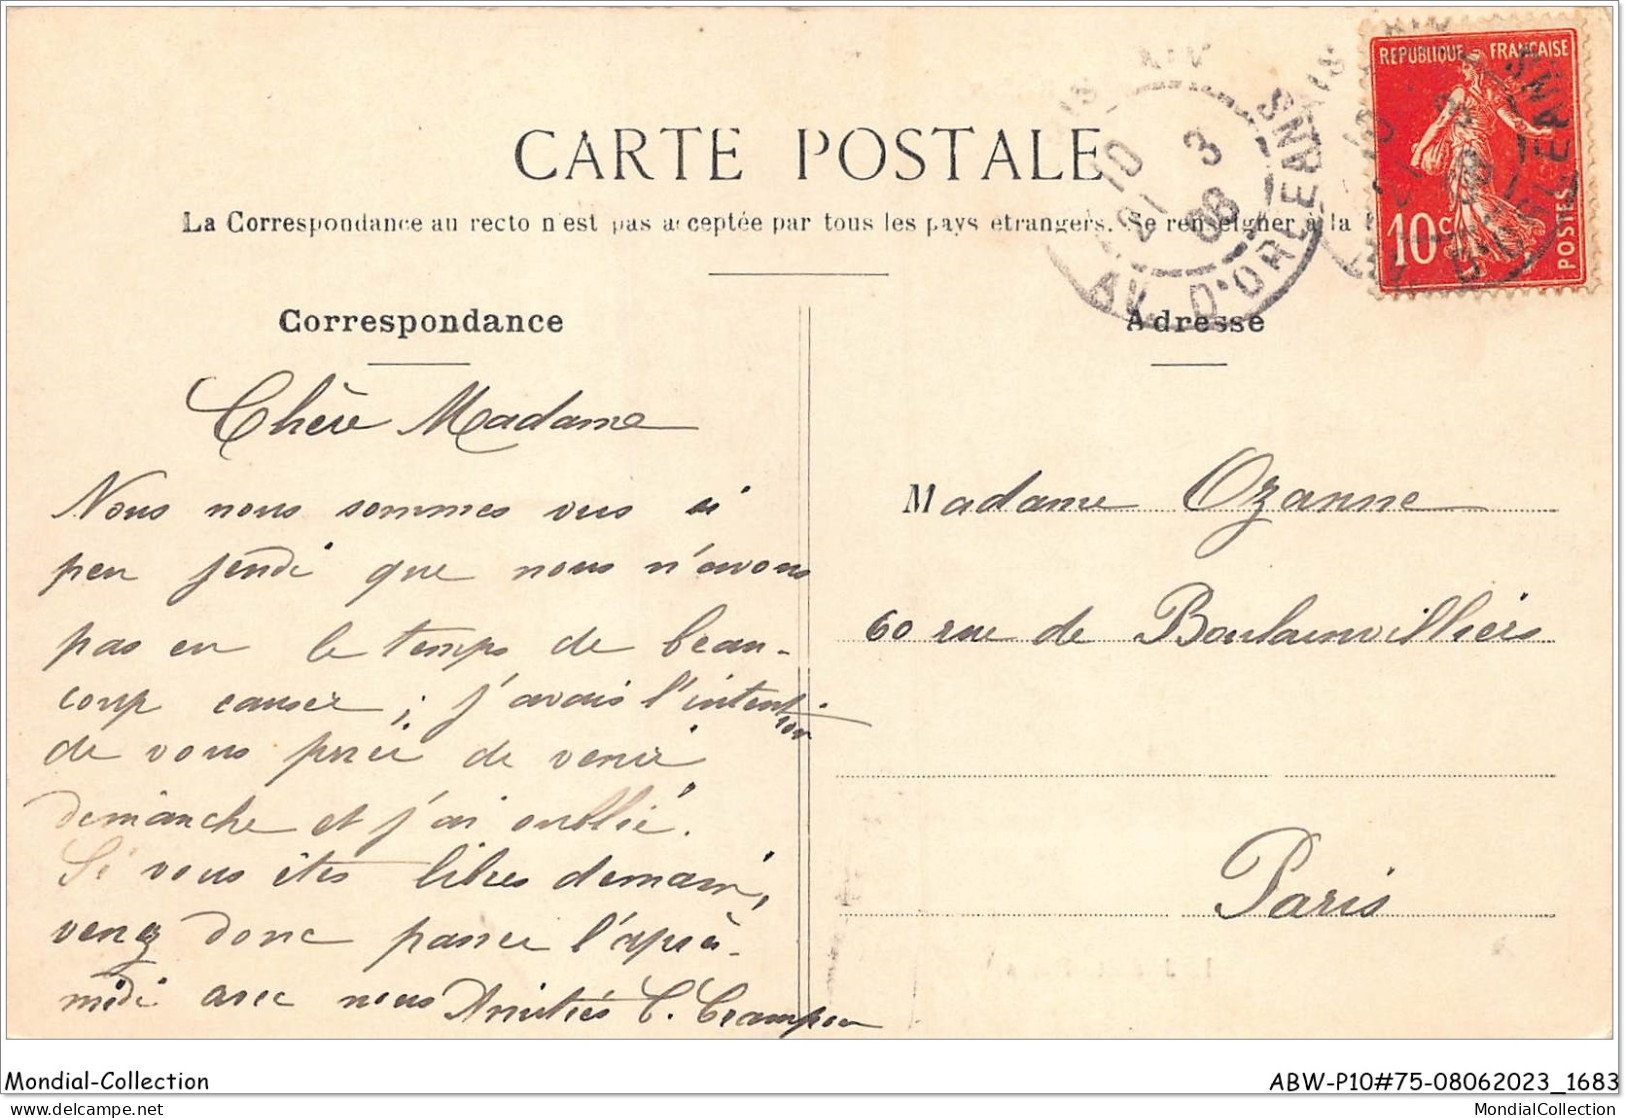 CARTE POSTALE
La Correspondance au recto n'est pas acceptée par tous les pays étrangers. Se renseigner à la
REPUBLIQUE FRANÇAISE
10c
POSTES
10
21 3
08
AV. D'ORLEANS
Correspondance
Adresse
Chère Madame
Nous nous sommes vus si
peu jeudi que nous n'avons
pas eu le temps de beau-
coup causer ; j'avais l'intention
de vous prier de venir
dimanche et j'ai oublié.
Si vous êtes libres demain,
venez donc passer l'après-
midi avec nous Amitiés C. Crampon
Madame Ozanne
60 rue de Boulainvilliers
Paris
Mondial-Collection
ABW-P10#75-08062023_1683
delcampe.net
MondialCollection